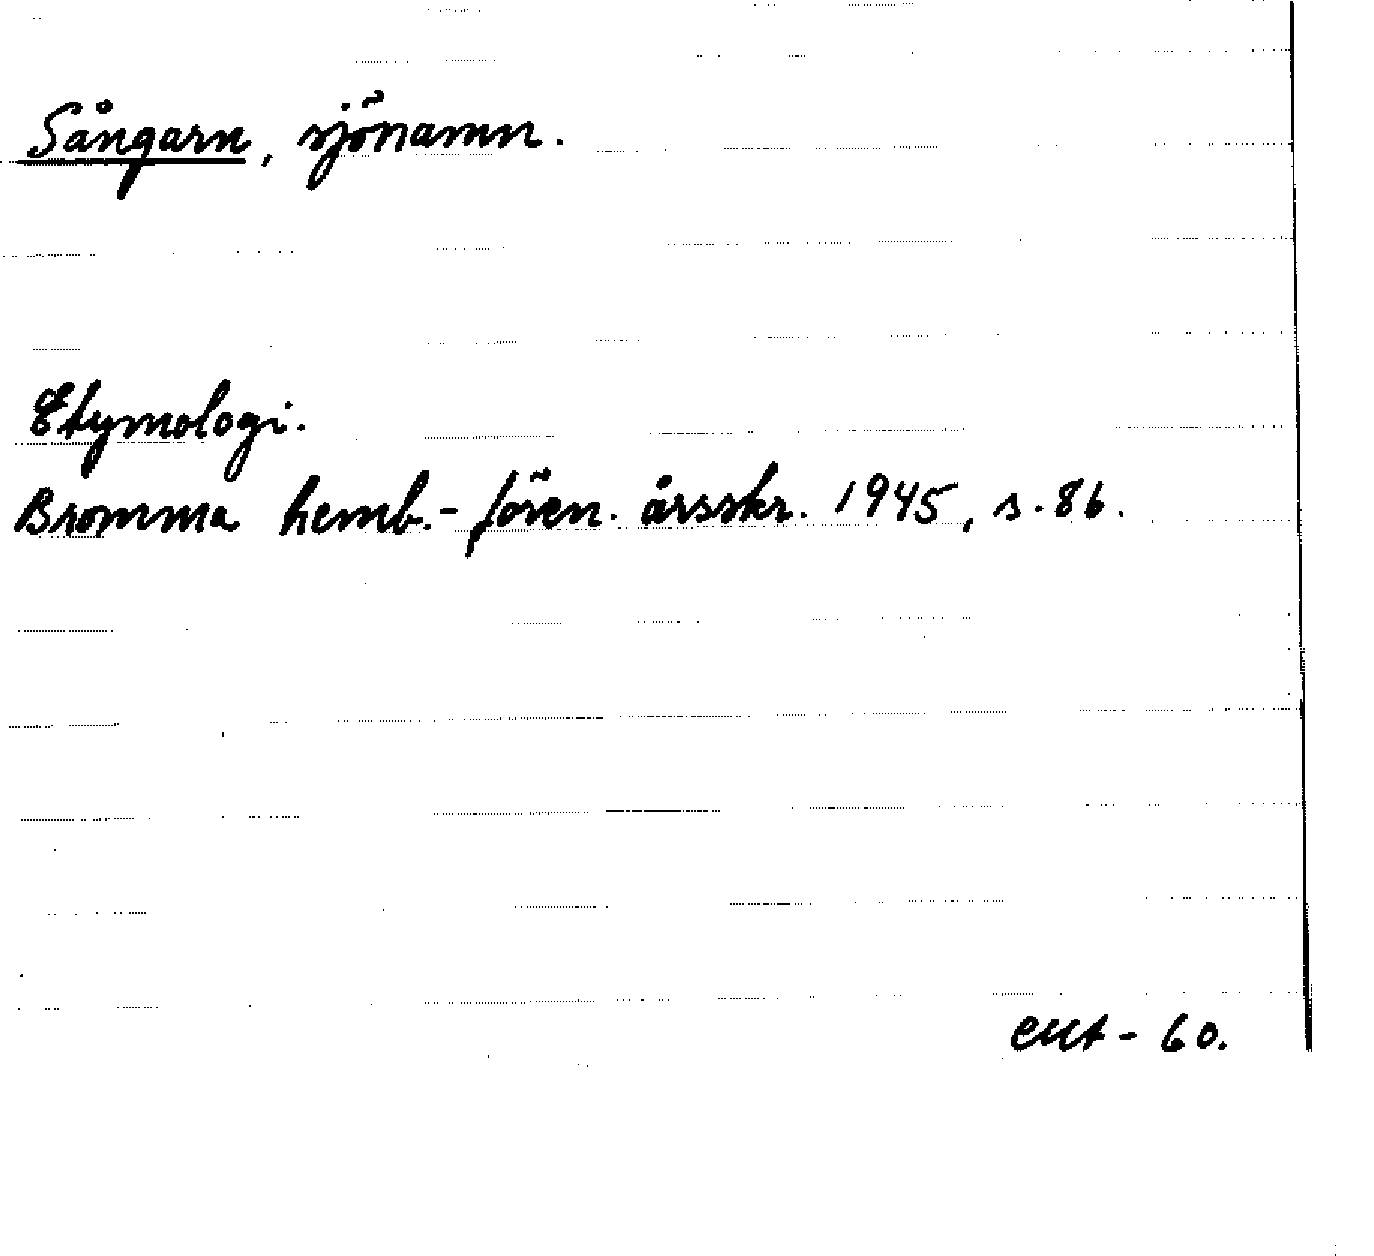 Sångarn, sjönamn.
Etymologi.
Bromma hemb.-fören. årsskr. 1945, s. 86.
60.